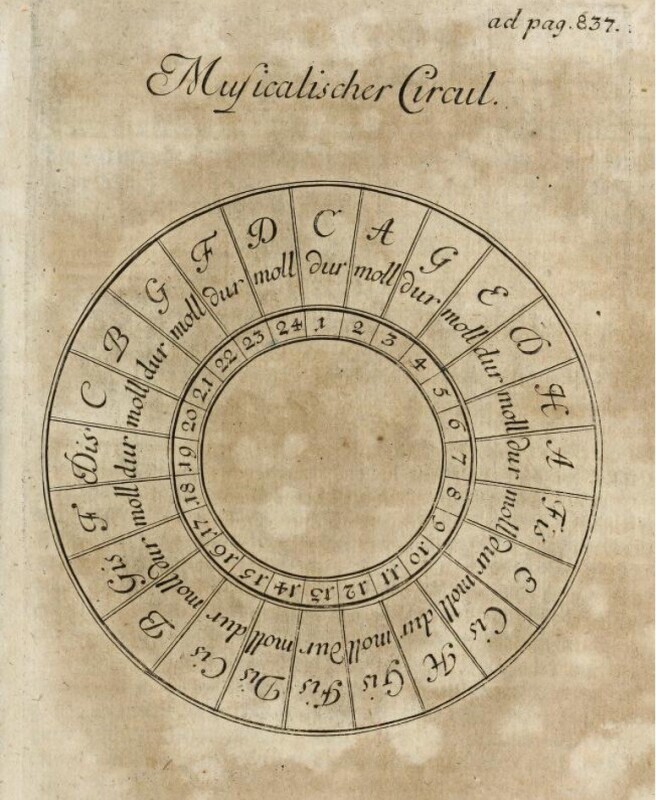 ad pag. 837.
Muſicalischer Circul.
C dur 1
A moll 2
G dur 3
E moll 4
D dur 5
H moll 6
A dur 7
Fis moll 8
E dur 9
Cis moll 10
H dur 11
Gis moll 12
Fis dur 13
Dis moll 14
Cis dur 15
B moll 16
Gis dur 17
F moll 18
Dis dur 19
C moll 20
B dur 21
G moll 22
F dur 23
D moll 24